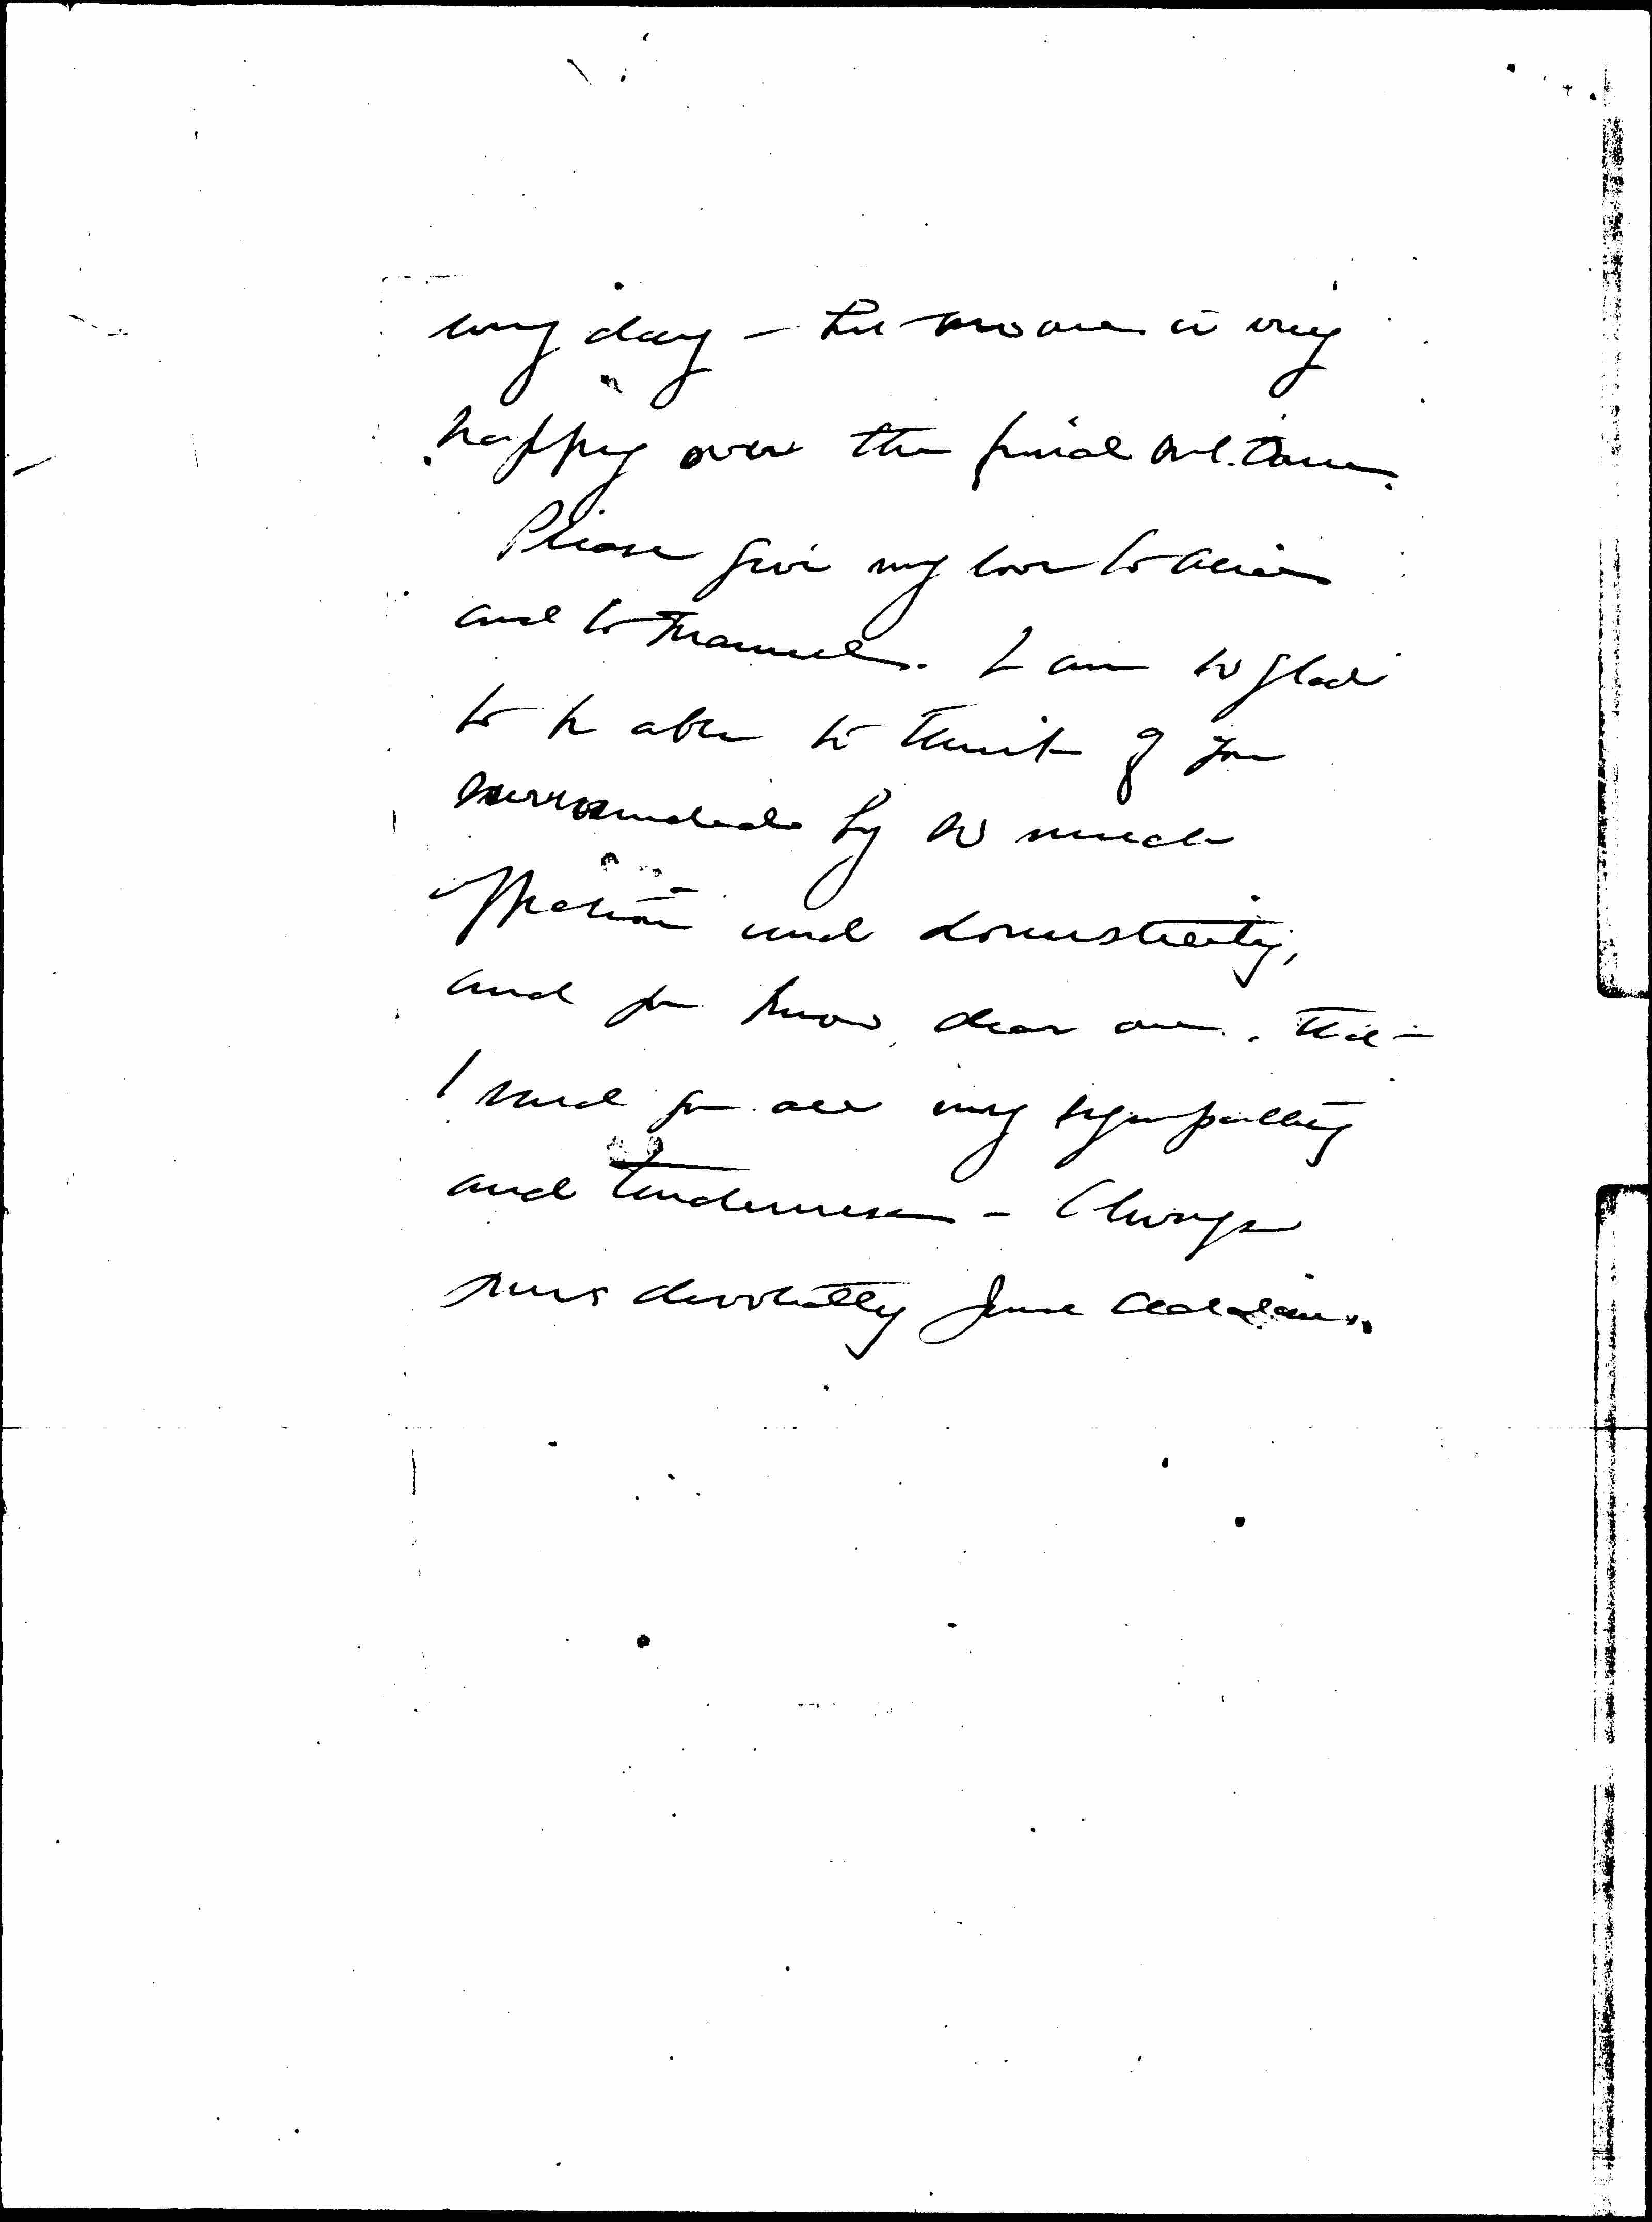 long day – but no one is very
happy over the final outcome.
Please give my love to Alice
and to Manuel. I am so glad
to be able to think of you
surrounded by so much
affection and domesticity,
and you know, dear one, that
I send you all my sympathy
and tenderness – Always
yours devotedly Jane Addams.